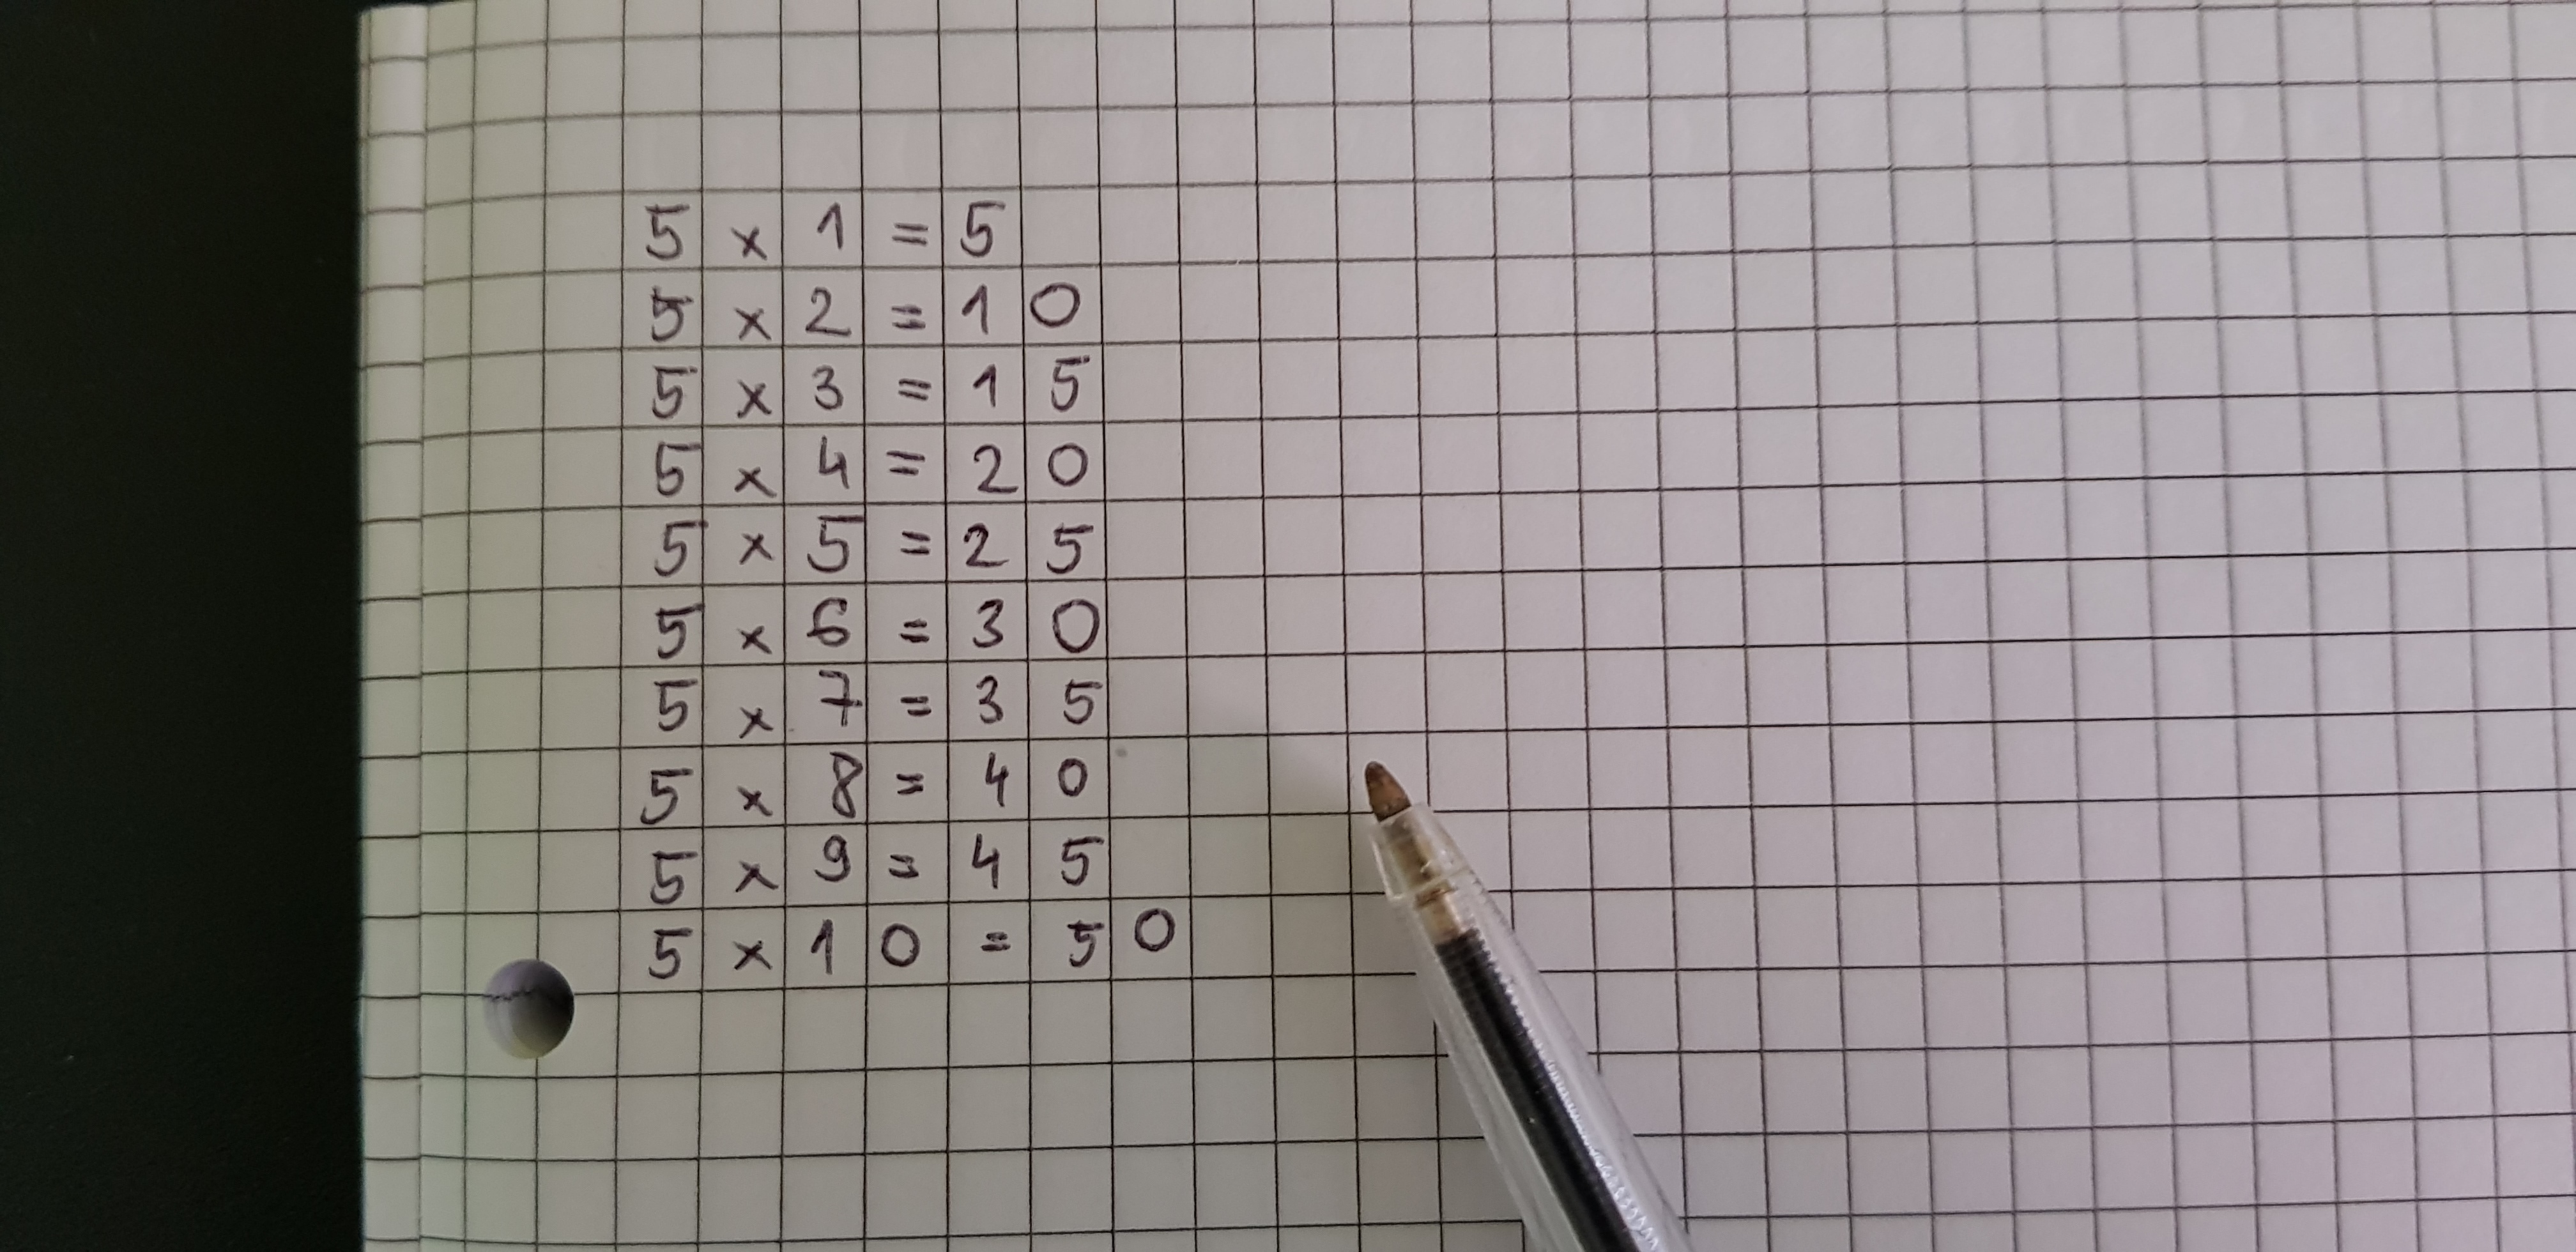 5 x 1 = 5
5 x 2 = 10
5 x 3 = 15
5 x 4 = 20
5 x 5 = 25
5 x 6 = 30
5 x 7 = 35
5 x 8 = 40
5 x 9 = 45
5 x 10 = 50